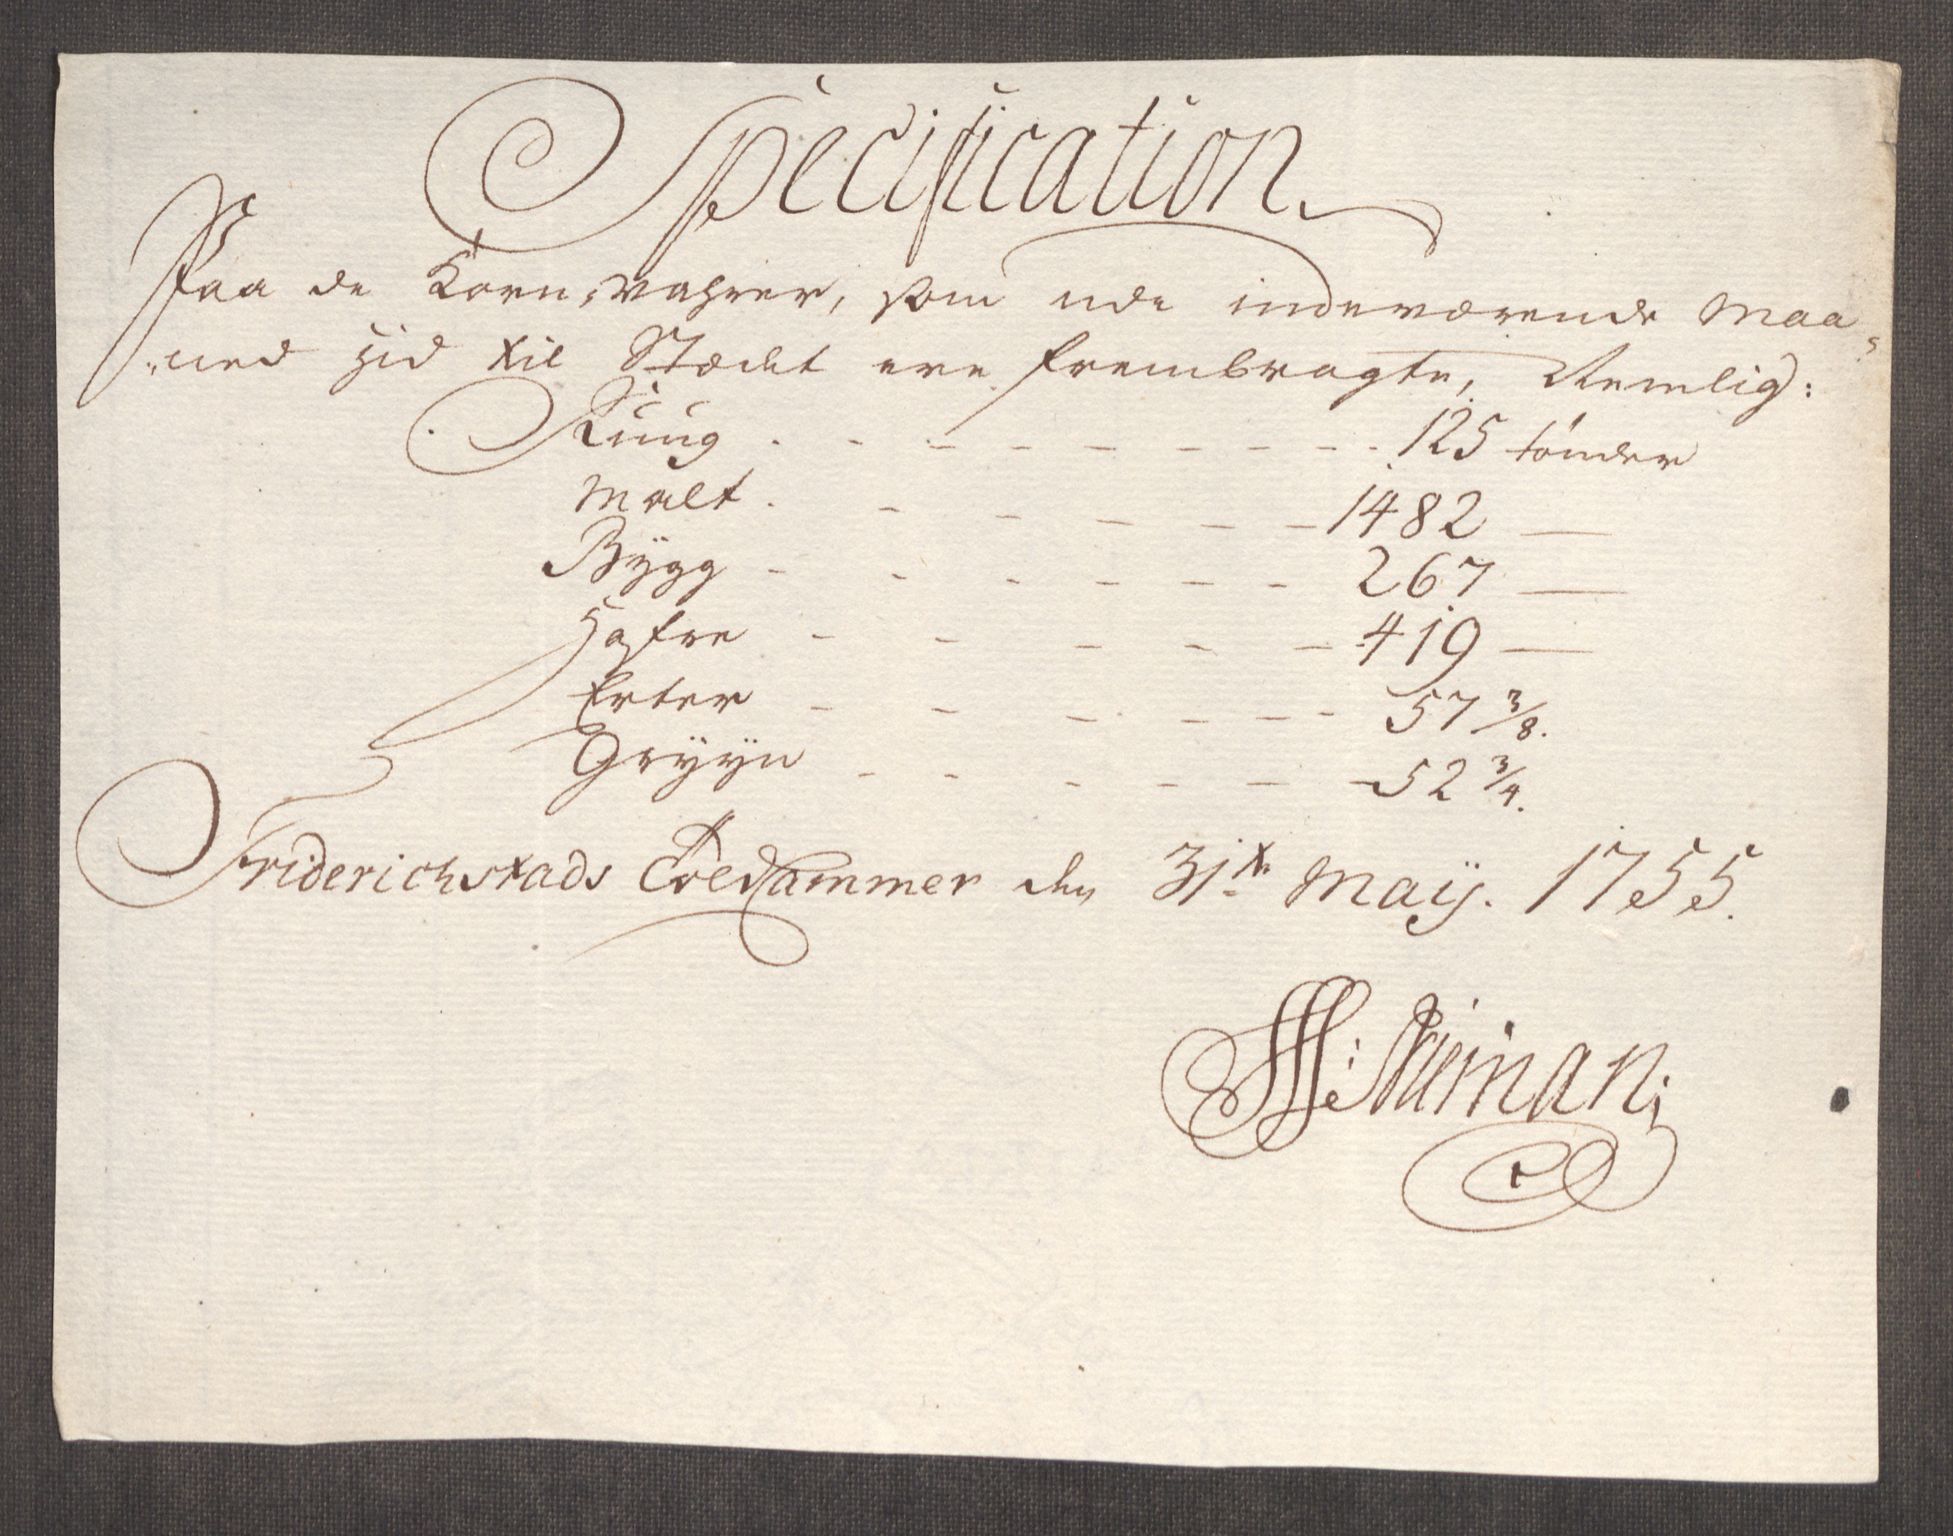 Specification
Paa de Korn-Vahrer, som udi indeværende Maa-
ned hid til Stædet ere frembragte, Nemlig:
Rüug - - - - - - - - - 125 tönder
Malt - - - - - - 1482 —
Bÿgg - - - - - - 267 —
Hafre - - - - - 419 —
Erter - - - - - - 57 3/8.
Grÿÿn - - - - - - 52 3/4.
Friderichstads Toedkammer den 31te Maÿ. 1755.